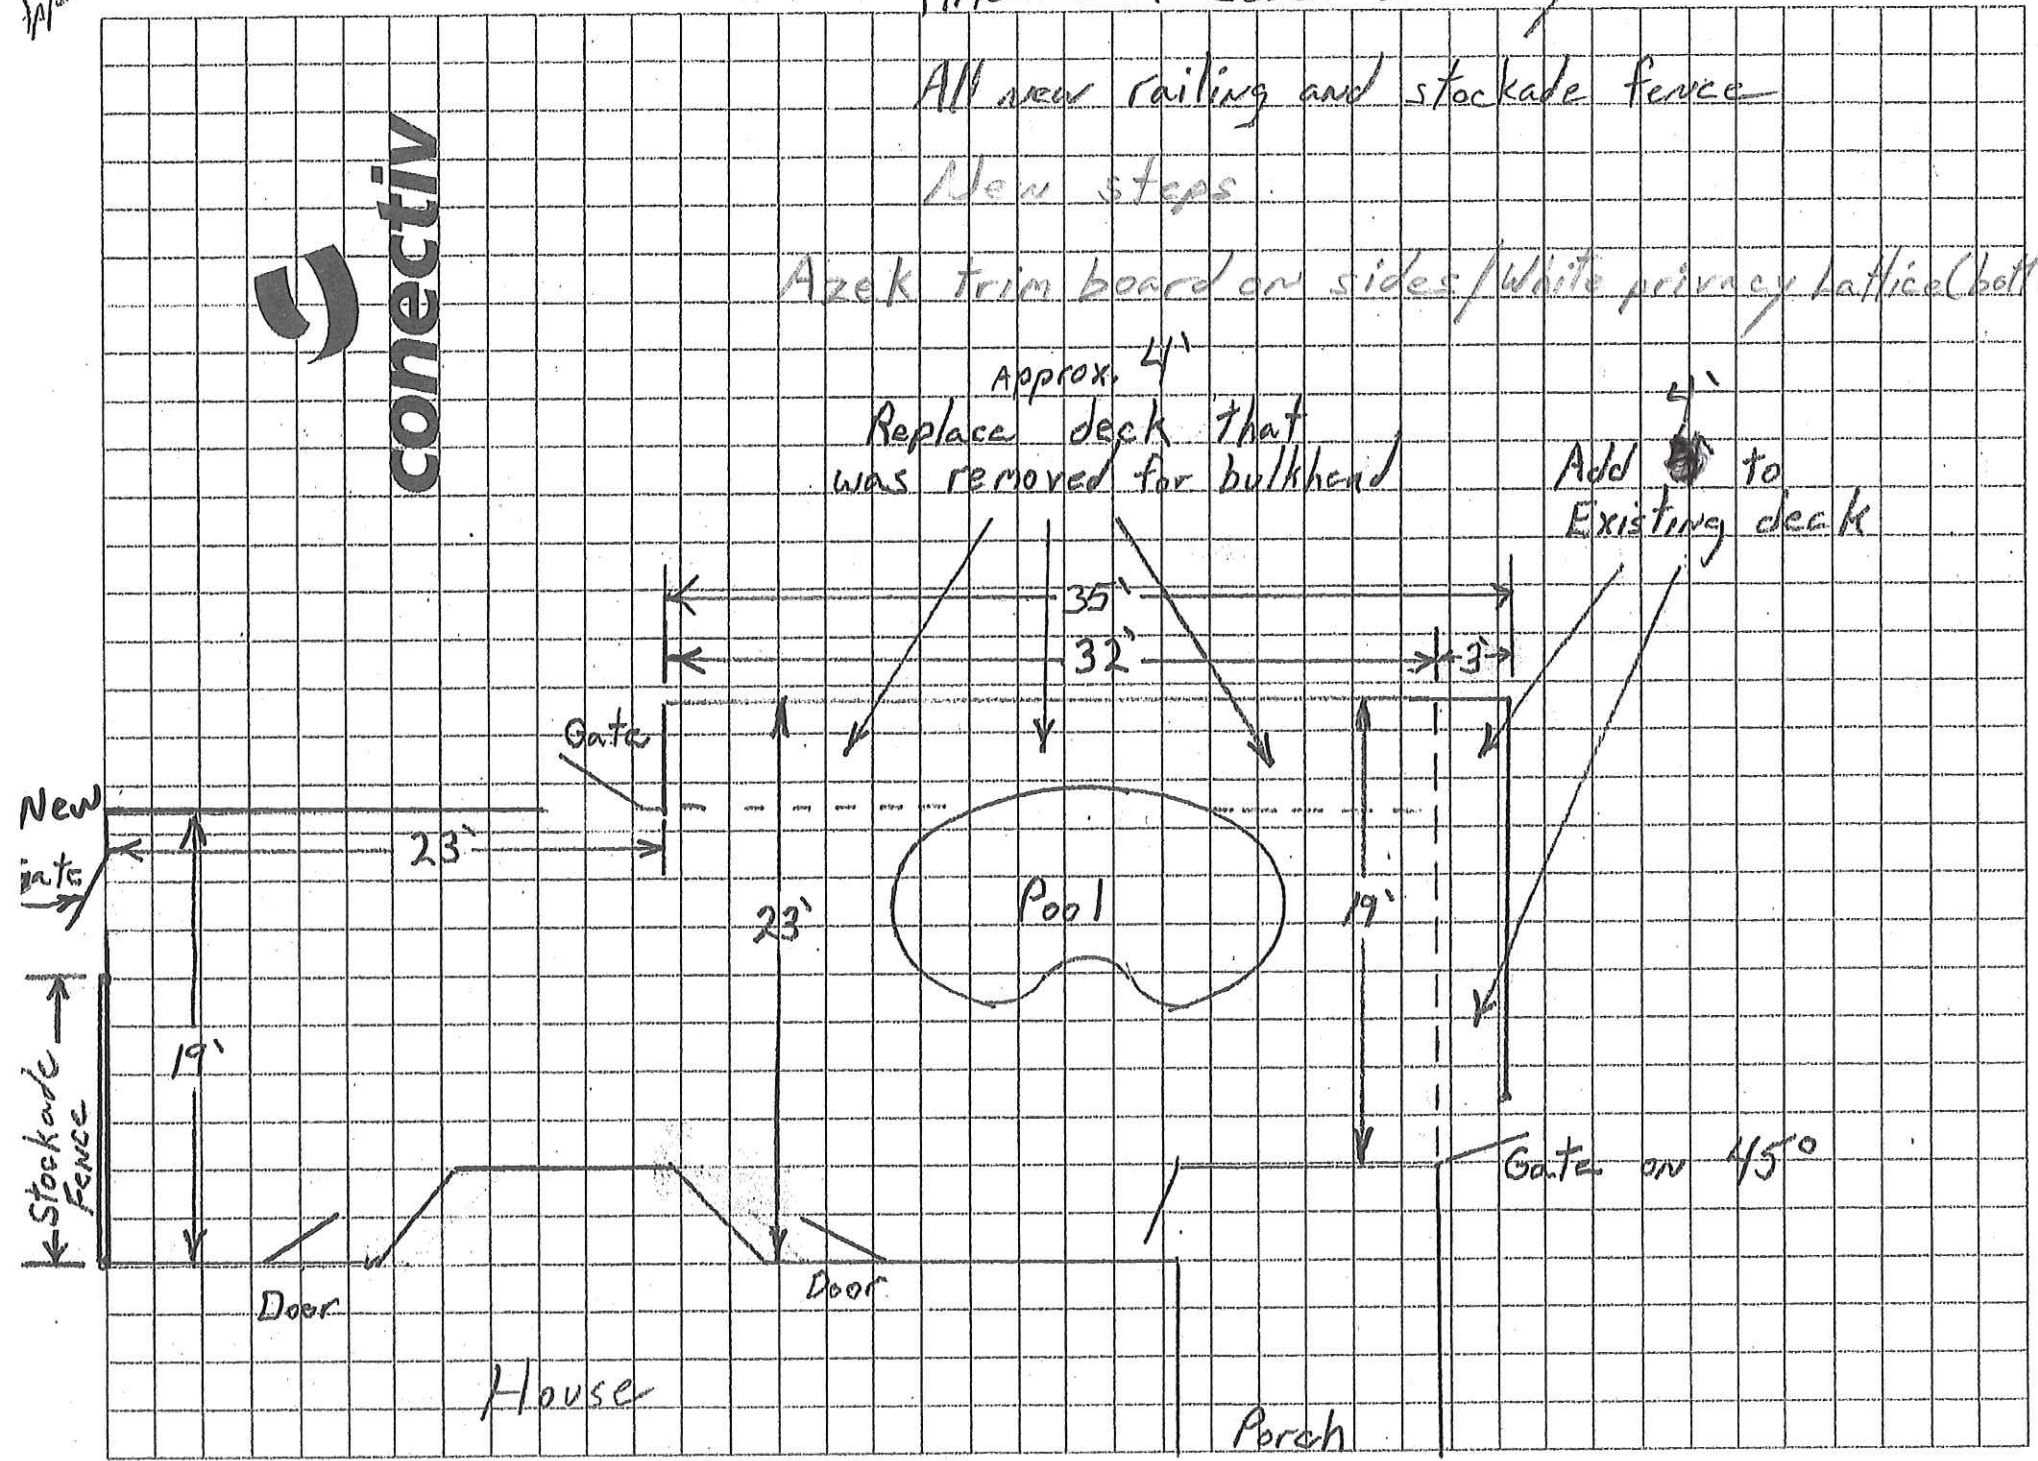 All new railing and stockade fence
New steps
Azek trim board on sides/White privacy Lattice(bott
conectiv
Approx. 4'
Replace deck that
was removed for bulkhead
4'
Add to
Existing deck
35'
32'
3'
Gate
New
23'
Pool
23'
19'
19'
Stockade
Fence
Gate on 45°
Door
Door
House
Porch